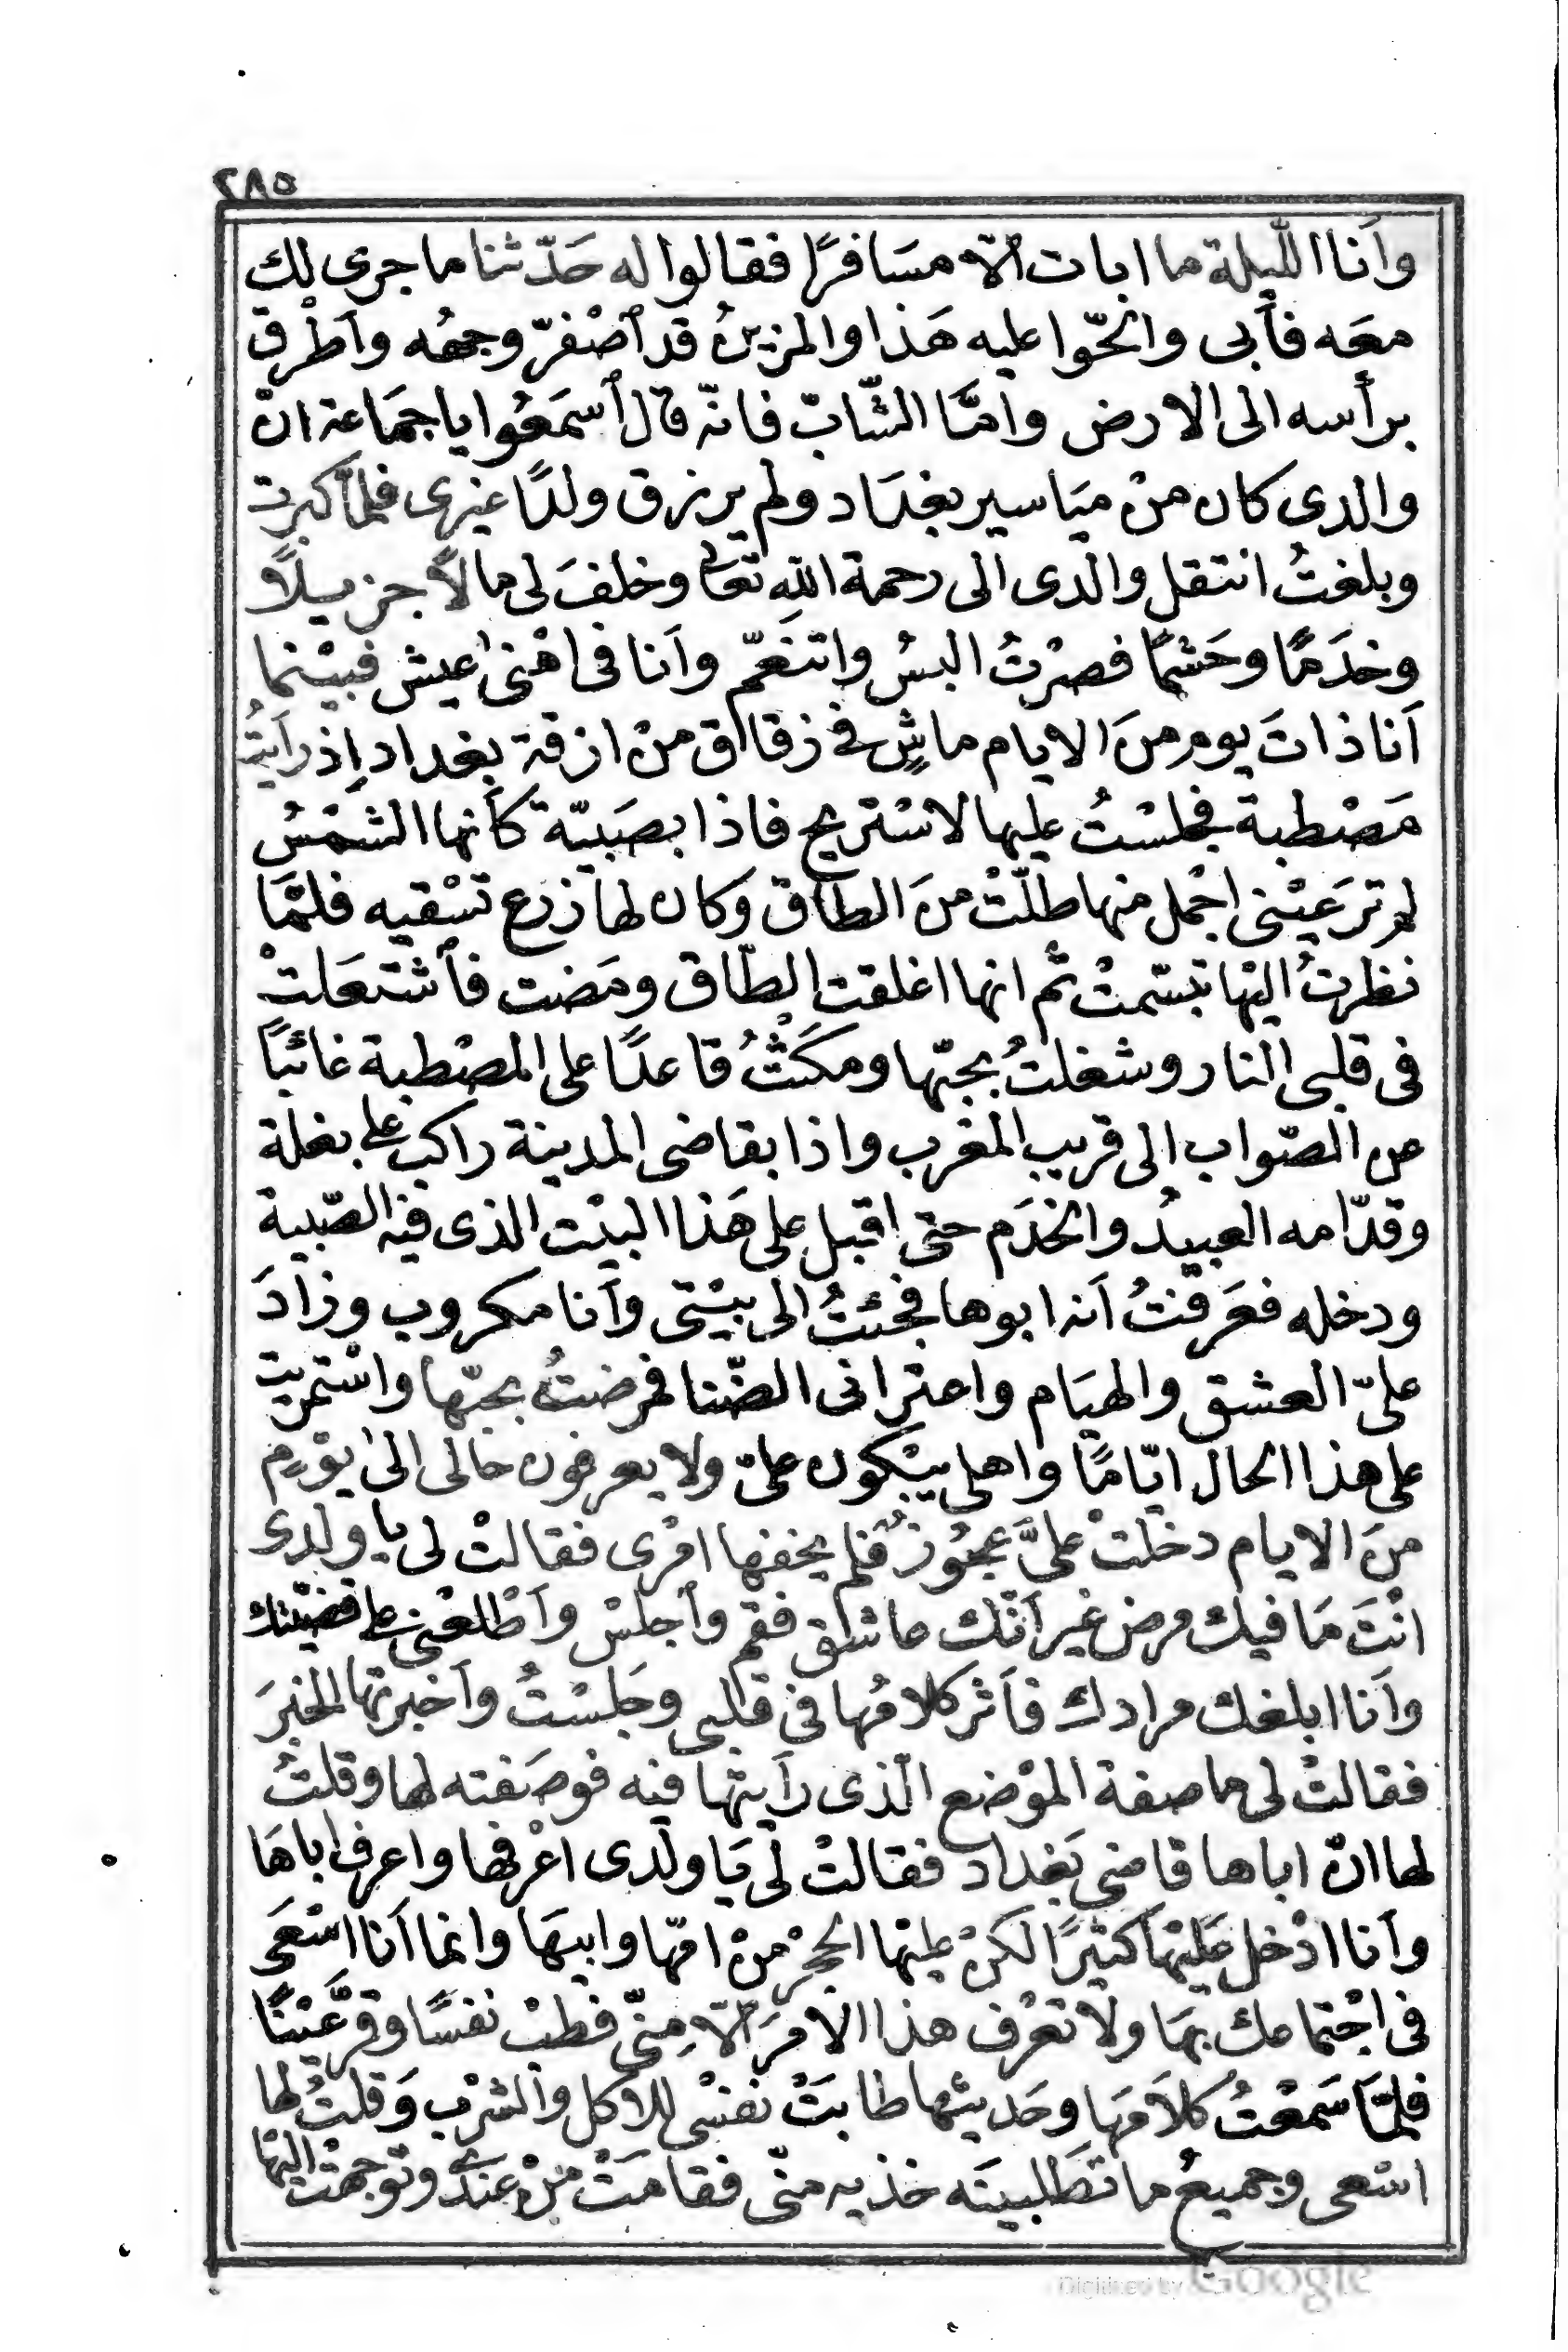 ٢٨٥
وأَنا اللّيلة ما ابات ٱلّا مسَافرًا فقالوا له حَدّثنا ما جرى لك
معَه فأَبى والحّوا عليه هَذا والمزينُ قد ٱصْفرّ وجهُه وأَطْرق
برأسه الى الارض وامّا الشّابّ فانّه قال ٱسمَعُوا يا جمَاعة انّ
والدى كان منْ ميَاسير بغدَاد ولم يرزق ولدًا غيرى فلمّا كبرت
وبلغتُ انتقل والدى الى رحمة الله تعَالى وخلفَ لى مالاً جزيلاً و
وخدَمًا وحَشمًا فصرْتُ البسُ واتنعّم وأَنا فى اهْنى عيش فبيْنما
أَنا ذاتَ يوم منَ الايام ماشٍ فى زقاق منْ ازقة بغداد إذ رأَيتُ
مَصْطبة فجلسْتُ عليها لاسْتريح فاذا بصَبيّة كأنها الشمْسُ
لم ترَ عيْنى اجْمل منها طلّتْ منَ الطاق وكان لها زرع تسْقيه فلمَّا
نظرتُ اليْها تبسّمتْ ثم انها اغلقت الطّاق ومَضت فأشتعَلتْ
فى قلبى النار وشغلتُ بحبّها ومكَثْتُ قاعدًا على المصْطبة غائبًا
عن الصّواب إلى قريب المغرب واذا بقاضى المدينة راكب على بغلة
وقدّامه العبيدُ والخدَم حتى اقبل على هَذا البيْت الذى فيْه الصّبية
ودخله فعَرفتُ أَنه ابوها فجئتُ الى بيْتى وأَنا مكروب وزادَ
علىّ العشق والهيَام واعترانى الضّنا فمرضتُ بحبّها واسْتمريت
على هذا الحال ايّامًا واهلى يبْكون علىّ ولا يعرفون حالى الى يوْمٍ
منَ الايام دخلَتْ علىَّ عجُوزٌ فلم يخفها امْرى فقالتْ لى يا ولدى
انْتَ مَا فيك مرض غير أَنّك عاشق فقم وأجلسْ وأَطْلعْنى على قضيّتك
وأَنا ابلغك مرادك فأَثر كلامُها فى قلبى وجَلسْتُ وأَخبرتها الخبرَ
فقالتْ لى ما صفة الموْضع الّذى رأَيتها فيه فوصَفته لها وقلتُ
لها انّ اباها قاضى بَغداد فقالتْ لى يَا ولدى اعْرفها واعرف اباهَا
وأَنا ادْخل عَليْها كثيْرًا لكنْ عليْها الحِجْر منْ امّها وابيهَا وانما أَنا اسْعَى
فى اجْتماعك بهَا ولا تعْرف هذا الامْرَ ٱلّا مِنّى فطبْ نفسًا وقرّ عَيْنًا
فلمَّا سَمعْتُ كلاَمَها وحَديثها طابَتْ نفسْى للاكل والشرْب وَقلتُ لها
اسْعى وجميعُ ما تطَلبينَه خذيه منّى فقامَتْ منْ عندى وتوجهتْ اليْها
Digitized by Google